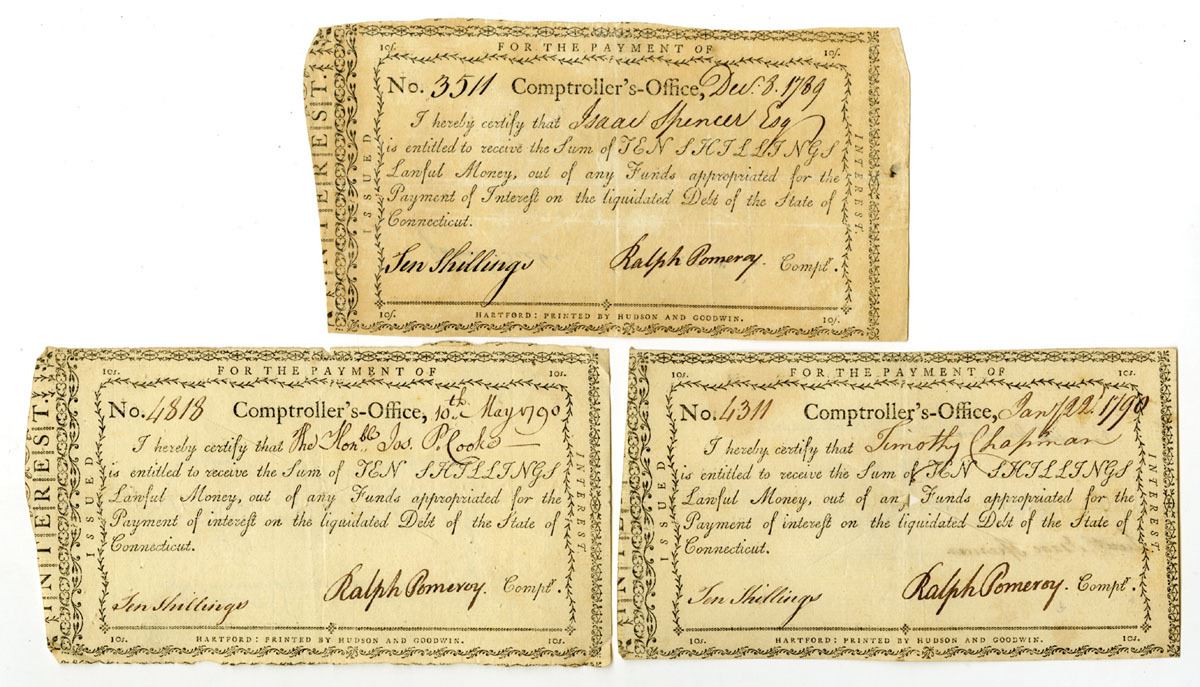 10s. FOR THE PAYMENT OF 10s.
INTEREST.
ISSUED
No. 3511 Comptroller's-Office, Decr. 8. 1789
I hereby certify that Isaac Spencer Esq
is entitled to receive the Sum of TEN SHILLINGS
Lawful Money, out of any Funds appropriated for the
Payment of Interest on the liquidated Debt of the State of
Connecticut.
Ten Shillings Ralph Pomeroy. Comptr.
INTEREST.
10s. HARTFORD: PRINTED BY HUDSON AND GOODWIN. 10s.
10s. FOR THE PAYMENT OF 10s.
INTEREST
ISSUED
No. 4818 Comptroller's-Office, 10th May 1790
I hereby certify that The Honble Jos. P. Cooke
is entitled to receive the Sum of TEN SHILLINGS
Lawful Money, out of any Funds appropriated for the
Payment of interest on the liquidated Debt of the State of
Connecticut.
Ten Shillings Ralph Pomeroy. Comptr.
INTEREST.
10s. HARTFORD: PRINTED BY HUDSON AND GOODWIN. 10s.
10s. FOR THE PAYMENT OF 10s.
INTE
ISSUED
No. 4311 Comptroller's-Office, Jany 22d 1790
I hereby certify that Timothy Chapman
is entitled to receive the Sum of TEN SHILLINGS
Lawful Money, out of any Funds appropriated for the
Payment of interest on the liquidated Debt of the State of
Connecticut.
Ten Shillings Ralph Pomeroy. Comptr.
INTEREST.
10s. HARTFORD: PRINTED BY HUDSON AND GOODWIN. 10s.